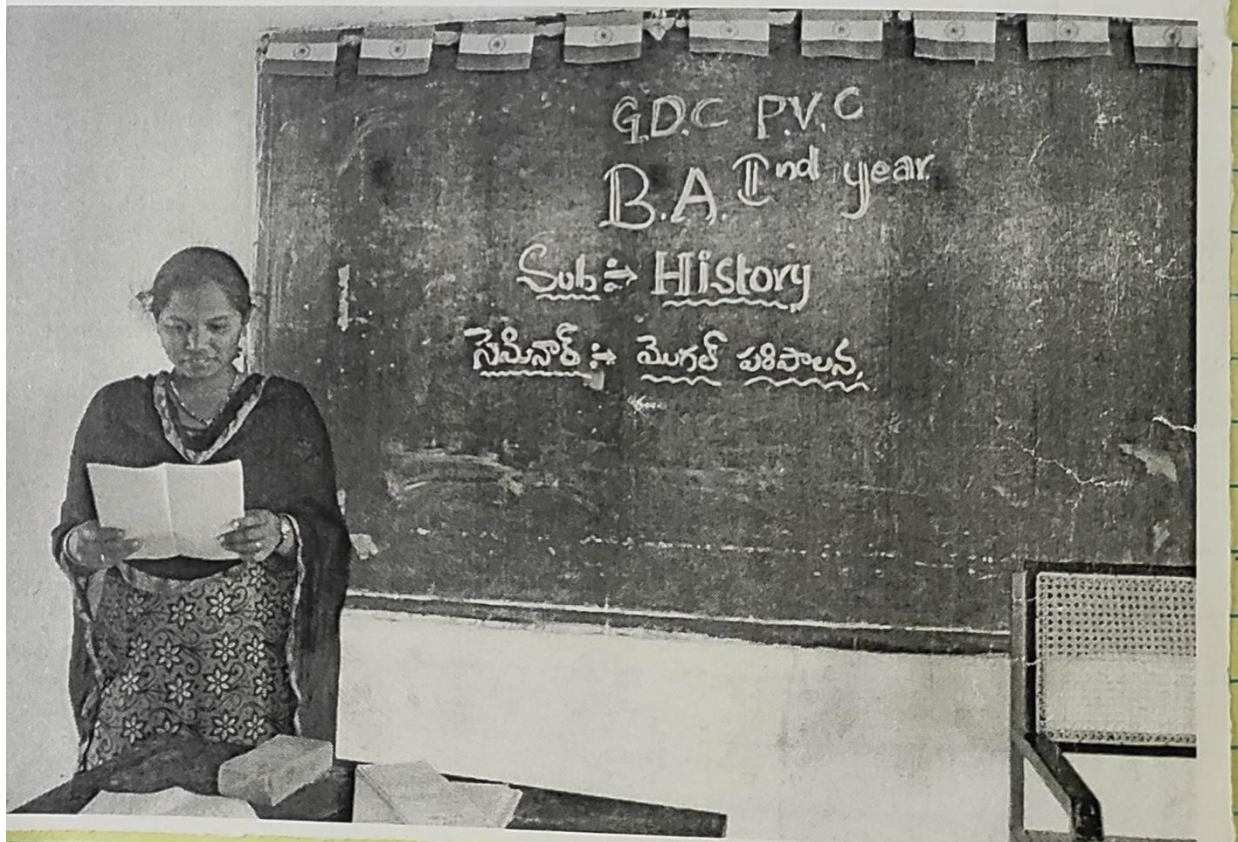 G.D.C P.V.C
B.A. IInd year.
Sub:→ History
సెమినార్ :→ మొగల్ పరిపాలన,